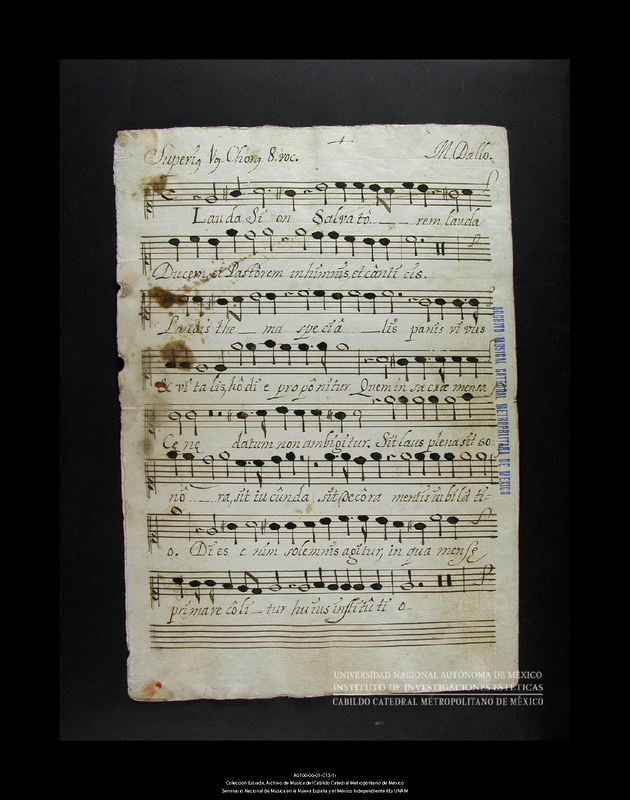 1
Superi9 V9. Chor9 8. voc. M. Dallo.
Lauda Si on Salva tô rem, laudá
Ducem, et Pastôrem in himnis, et cânti cis.
Laudis the ma specîâ lis panis vi vus
et vi ta lis, hô di e propônitur. Quem in sacræ mensa
Ce nę datum non ambigitur. Sit laus plena, sit so
nô ra, sit iu cûnda sit Decôra mentis iubila ti-
o. Di es e nim solemnis agitur, in qua mensę
pri mare côli tur huius institûti o.
ARCHIVO MUSICAL CATEDRAL METROPOLITANA DE MEXICO
UNIVERSIDAD NACIONAL AUTÓNOMA DE MÉXICO
INSTITUTO DE INVESTIGACIONES ESTÉTICAS
CABILDO CATEDRAL METROPOLITANO DE MÉXICO
Colección Estrada, Archivo de Música del Cabildo Catedral Metropolitano de México
Seminario Nacional de Música en la Nueva España y el México Independiente IIEs UNAM